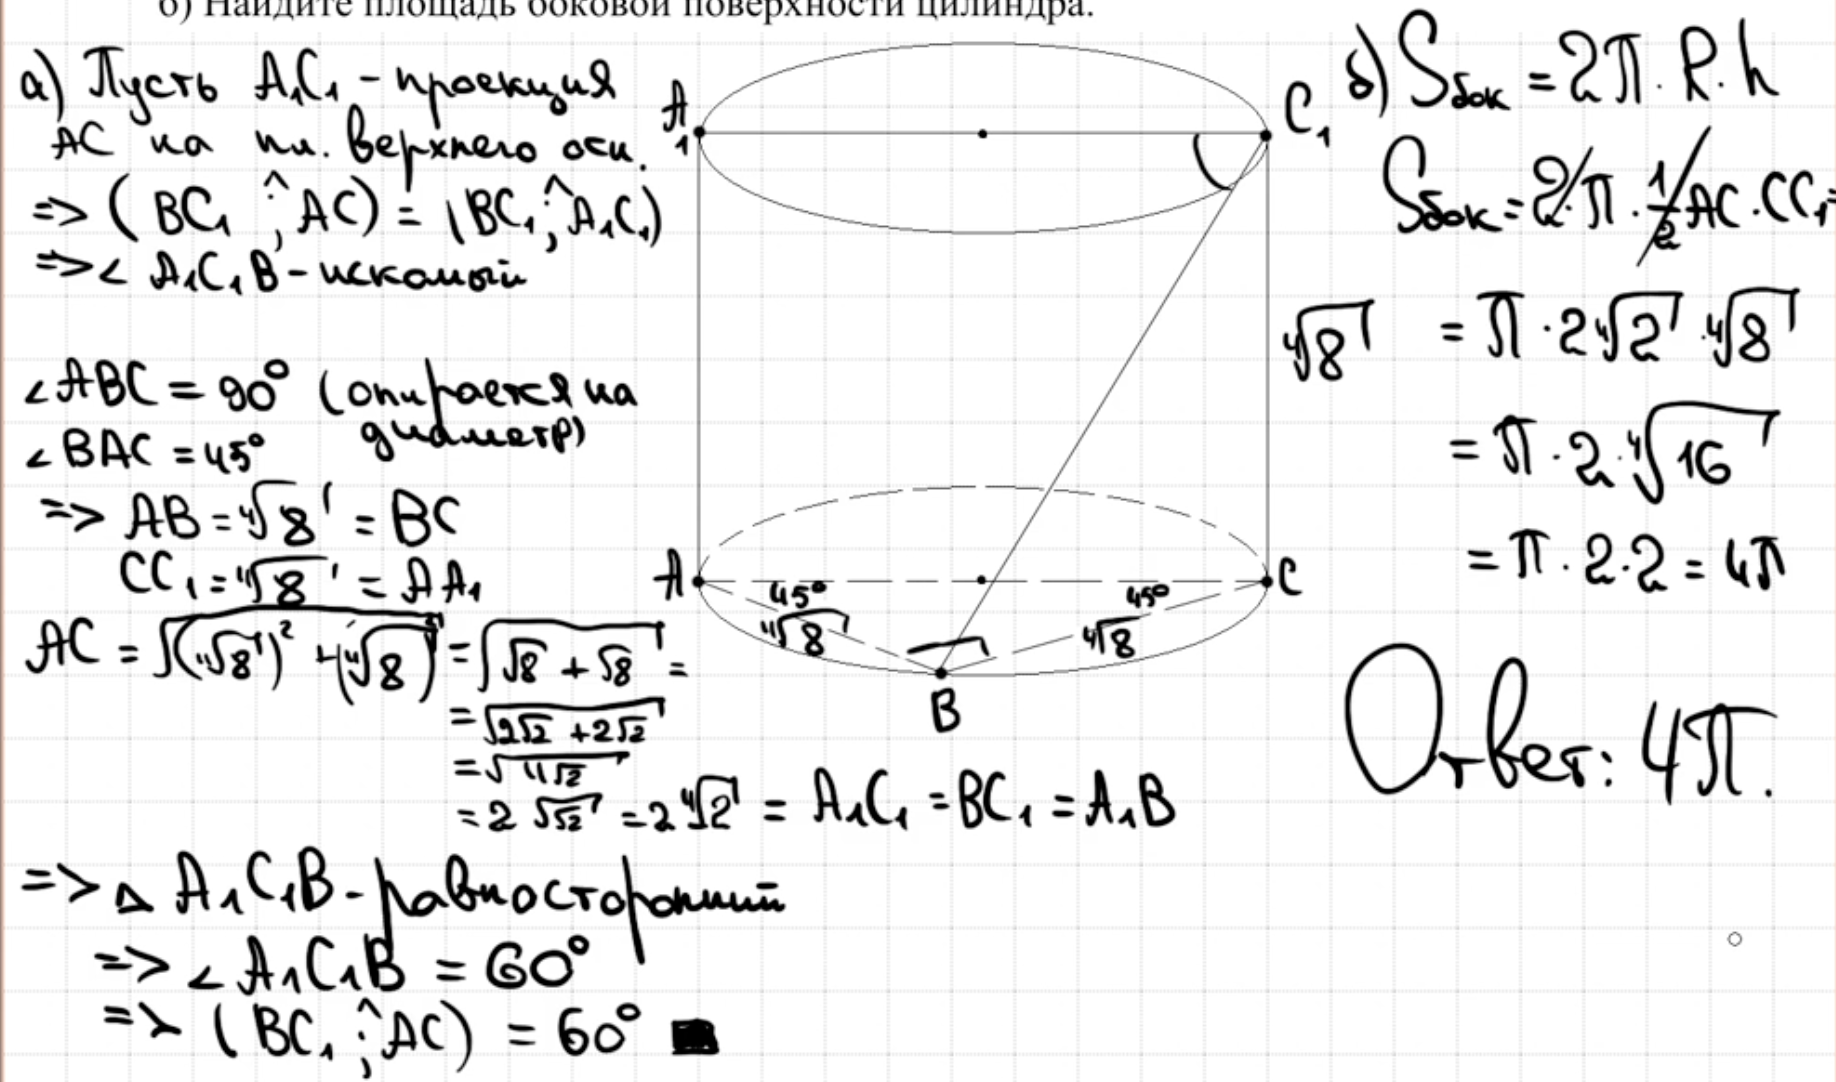 б) Найдите площадь боковой поверхности цилиндра.
а) Пусть A₁C₁ - проекция
AC на пл. верхнего осн.
=> (BC₁ ;^ AC) = (BC₁ ;^ A₁C₁)
=> ∠ A₁C₁B - искомый
∠ABC = 90° (опирается на
диаметр)
∠BAC = 45°
=> AB = ⁴√8 = BC
CC₁ = ⁴√8 = AA₁
AC = √((⁴√8)² + (⁴√8)²) = √(√8 + √8) =
= √(2√2 + 2√2)
= √(4√2)
= 2√√2 = 2⁴√2 = A₁C₁ = BC₁ = A₁B
=> △ A₁C₁B - равносторонний
=> ∠ A₁C₁B = 60°
=> (BC₁ ;^ AC) = 60° ■
A₁
C₁
⁴√8
A
45°
⁴√8
45°
⁴√8
C
B
б) Sбок = 2π · R · h
Sбок = 2 · π · 1/2 AC · CC₁ =
= π · 2⁴√2 · ⁴√8
= π · 2 · ⁴√16
= π · 2 · 2 = 4π
Ответ: 4π.